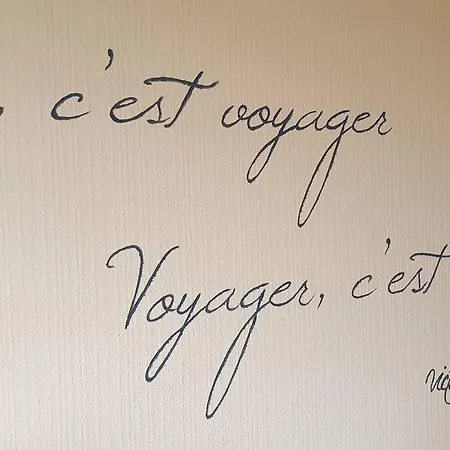 , c'est voyager
Voyager, c'est